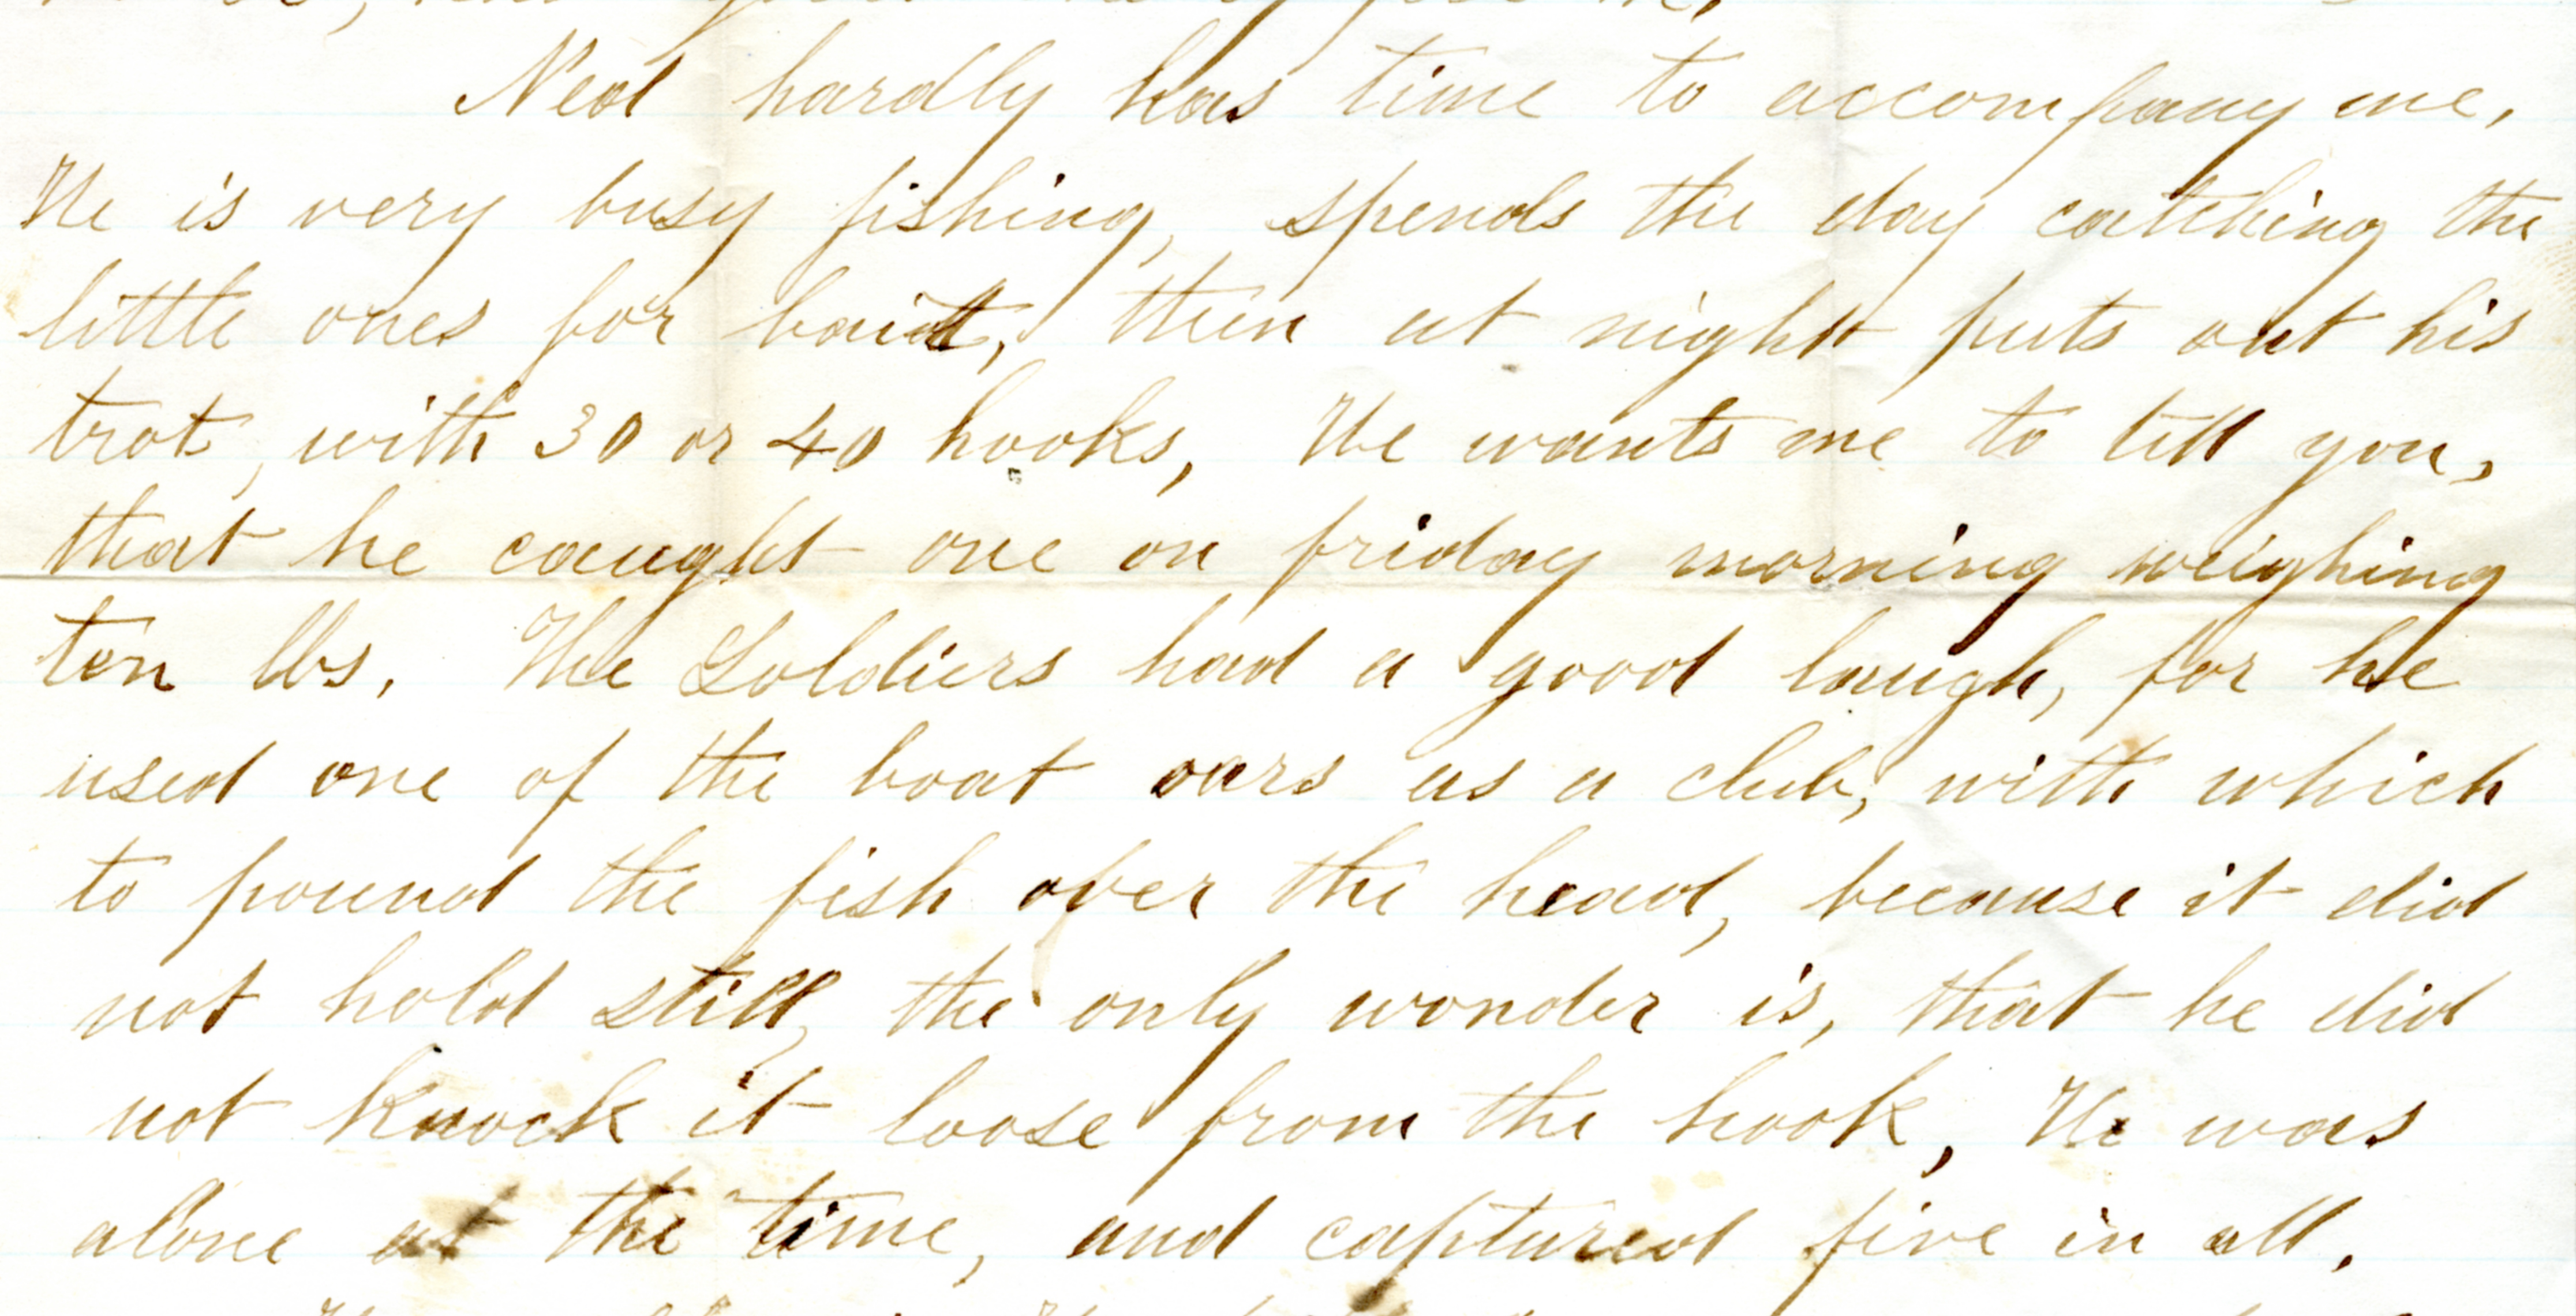 Ned hardly has time to accompany me,
He is very busy fishing, spends the day catching the
little ones for bait, then at night puts out his
trot, with 30 or 40 hooks, He wants me to tell you,
that he caught one on friday morning weighing
ten lbs. The Soldiers had a good laugh, for he
used one of the boat oars as a club, with which
to pound the fish over the head, because it did
not hold still, the only wonder is, that he did
not knock it loose from the hook, He was
alone at the time, and captured five in all.